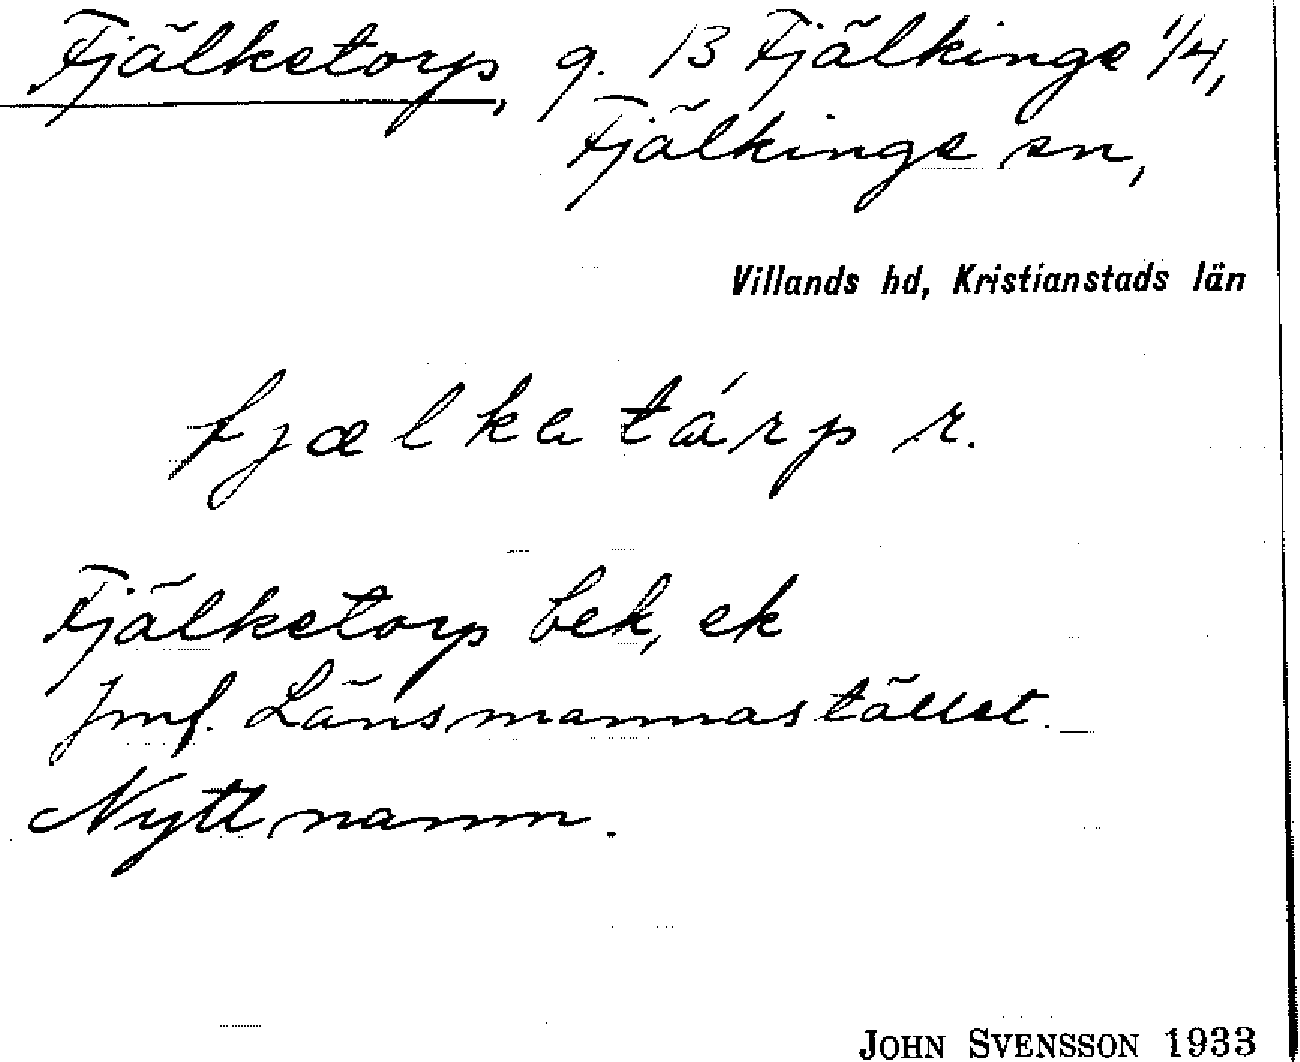 Fjälketorp, g. 13 Fjälkinge 1/4,
Fjälkinge sn,
Villands hd, Kristianstads län
fjælkatárp r.
Fjälketorp bek, ek
Jmf. Länsmannastället.
Nytt namn.
JOHN SVENSSON 1933